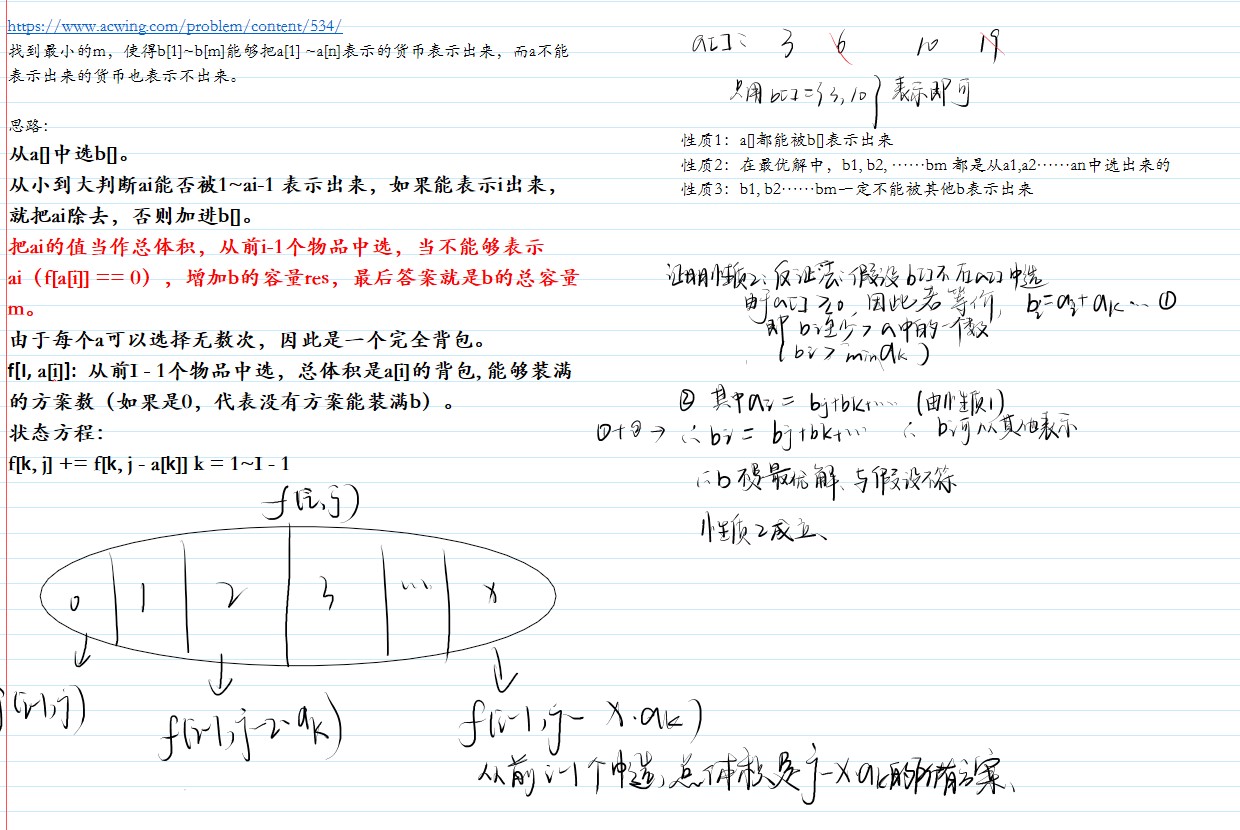 https://www.acwing.com/problem/content/534/
找到最小的m，使得b[1]~b[m]能够把a[1] ~a[n]表示的货币表示出来，而a不能
表示出来的货币也表示不出来。
思路：
从a[]中选b[]。
从小到大判断ai能否被1~ai-1 表示出来，如果能表示i出来，
就把ai除去，否则加进b[]。
把ai的值当作总体积，从前i-1个物品中选，当不能够表示
ai（f[a[i]] == 0），增加b的容量res，最后答案就是b的总容量
m。
由于每个a可以选择无数次，因此是一个完全背包。
f[I, a[i]]: 从前I - 1个物品中选，总体积是a[i]的背包, 能够装满
的方案数（如果是0，代表没有方案能装满b）。
状态方程：
f[k, j] += f[k, j - a[k]] k = 1~I - 1
f(i,j)
0 1 2 3 … x
f(i-1,j)
f(i-1,j-2·ak)
f(i-1,j- x·ak)
从前i-1个中选,总体积是j-x·ak的所有方案、
a[]: 3 6 10 19
只用b[]={3,10} 表示即可
性质1：a[]都能被b[]表示出来
性质2：在最优解中，b1, b2, ……bm 都是从a1,a2……an中选出来的
性质3：b1, b2……bm一定不能被其他b表示出来
证明性质2: 反证法: 假设b[]不在a[]中选
由于a[]≥0, 因此若等价, bi=aj+ak… ①
即 bi至少>a中的一个数
(bi>minak)
② 其中ai= bj+bk+… (由性质1)
①+②→ ∴bi= bj+bk+… ∴ bi可从其他表示
∴b不是最优解、与假设不符
性质2成立、